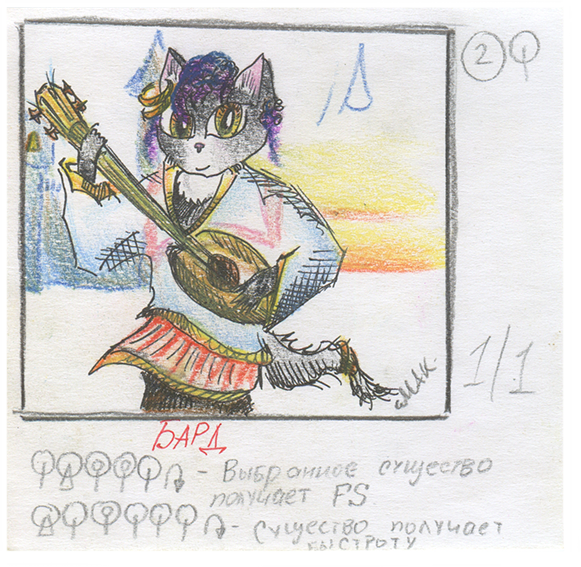 2
1/1
БАРД
- Выбранное существо
получает FS
- Существо получает
быстроту